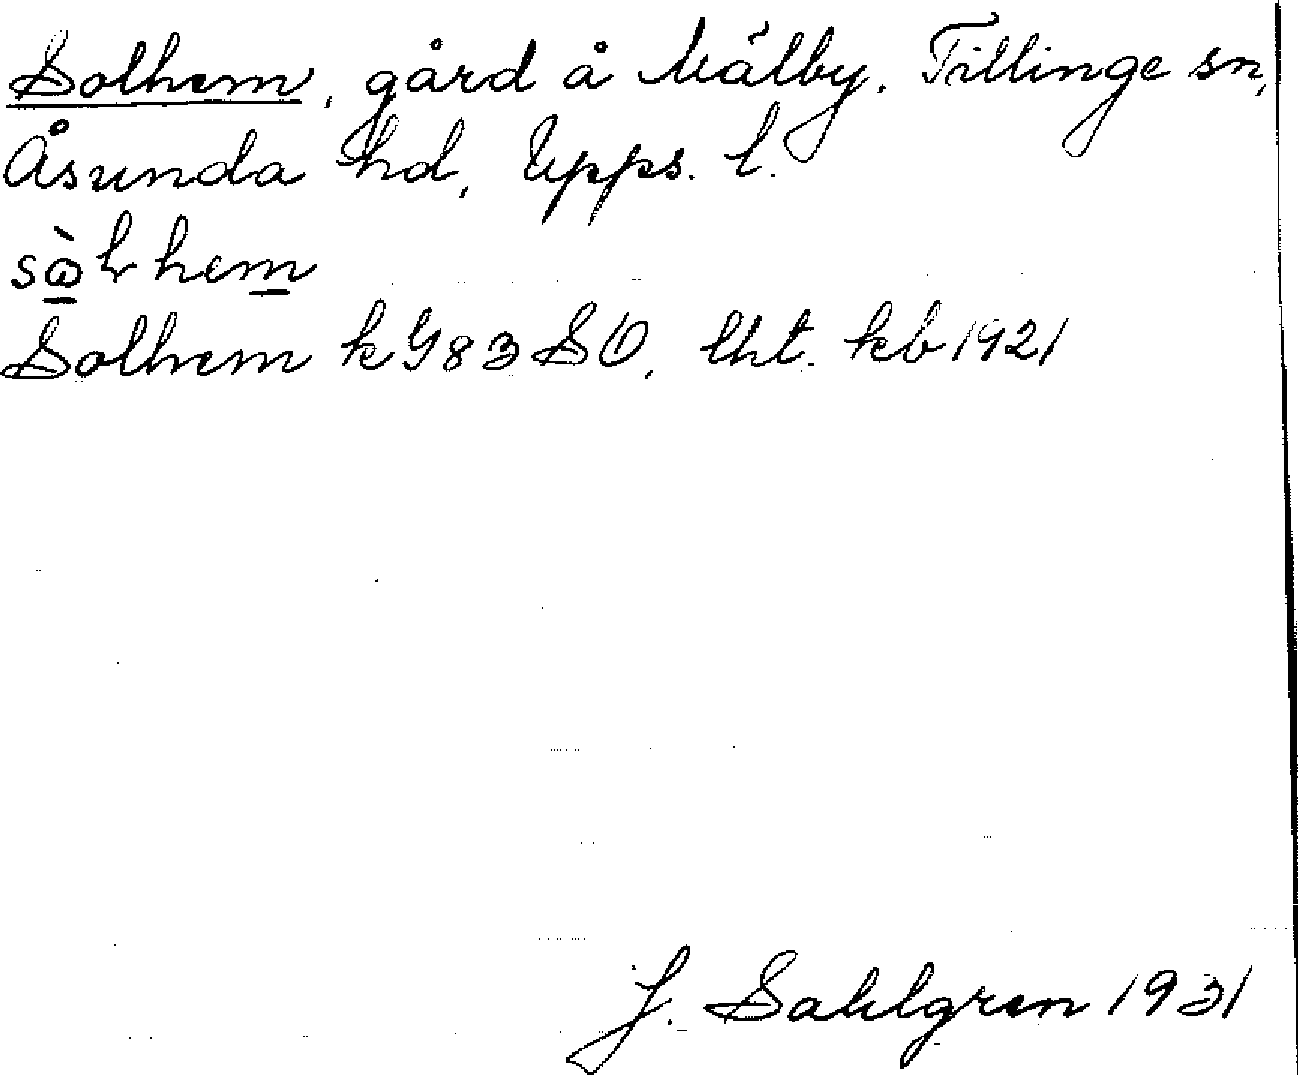 Solhem, gård å Mälby, Tillinge sn,
Åsunda hd, Upps. l.
Solhem k G 83 SO, lht. kb 1921
J. Sahlgren 1931